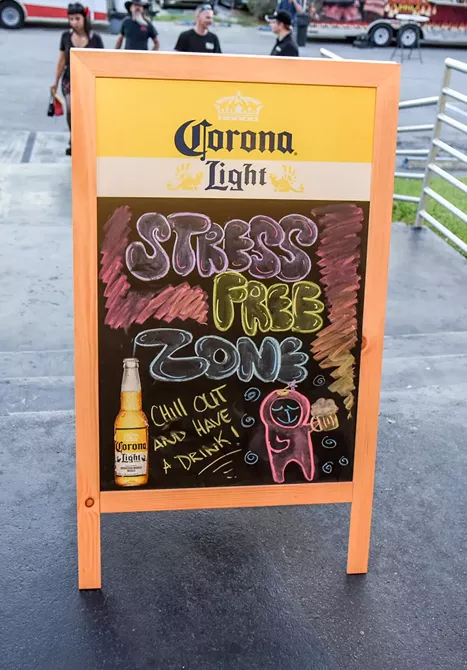 Corona
Light
STRESS
FREE
ZONE
CHILL OUT
AND HAVE
A DRINK!
Corona
Light